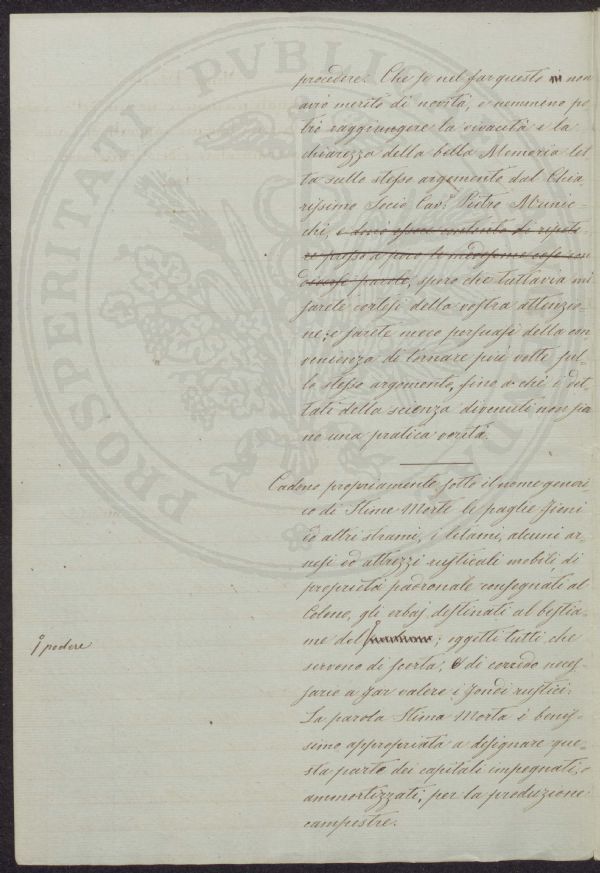 procedere. Che se nel far questo non
avrò merito di novità, e nemmeno po
trò raggiungere la vivacità e la
chiarezza della bella Memoria let
ta sullo stesso argomento dal Chia
rissimo Socio Cav.e Pietro Municc-
chi, e dovrò essere contento di ripete-
re presso a poco le medesime cose con
diverse parole, spero che tuttavia mi
sarete cortesi della vostra attenzio-
ne; e sarete meco persuasi della con
venienza di tornare più volte sul
lo stesso argomento, fino a che i det
tati della scienza divenuti non sia
no una pratica verità.
Cadono propriamente sotto il nome generi
co di Stime Morte le paglie fieni
ed altri strami, i letami, alcuni ar-
nesi ed attrezzi rusticali mobili, di
proprietà padronale consegnati al
Colono, gli erbaj destinati al bestia-
me del; oggetti tutti che
podere
servono di scorta, e di corredo neces
sario a far valere i fondi rustici.
La parola Stima Morta è benis-
simo appropriata a designare que-
sta parte dei capitali impegnati, e
ammortizzati, per la produzione
campestre.
PROSPERITATI PVBLICAE